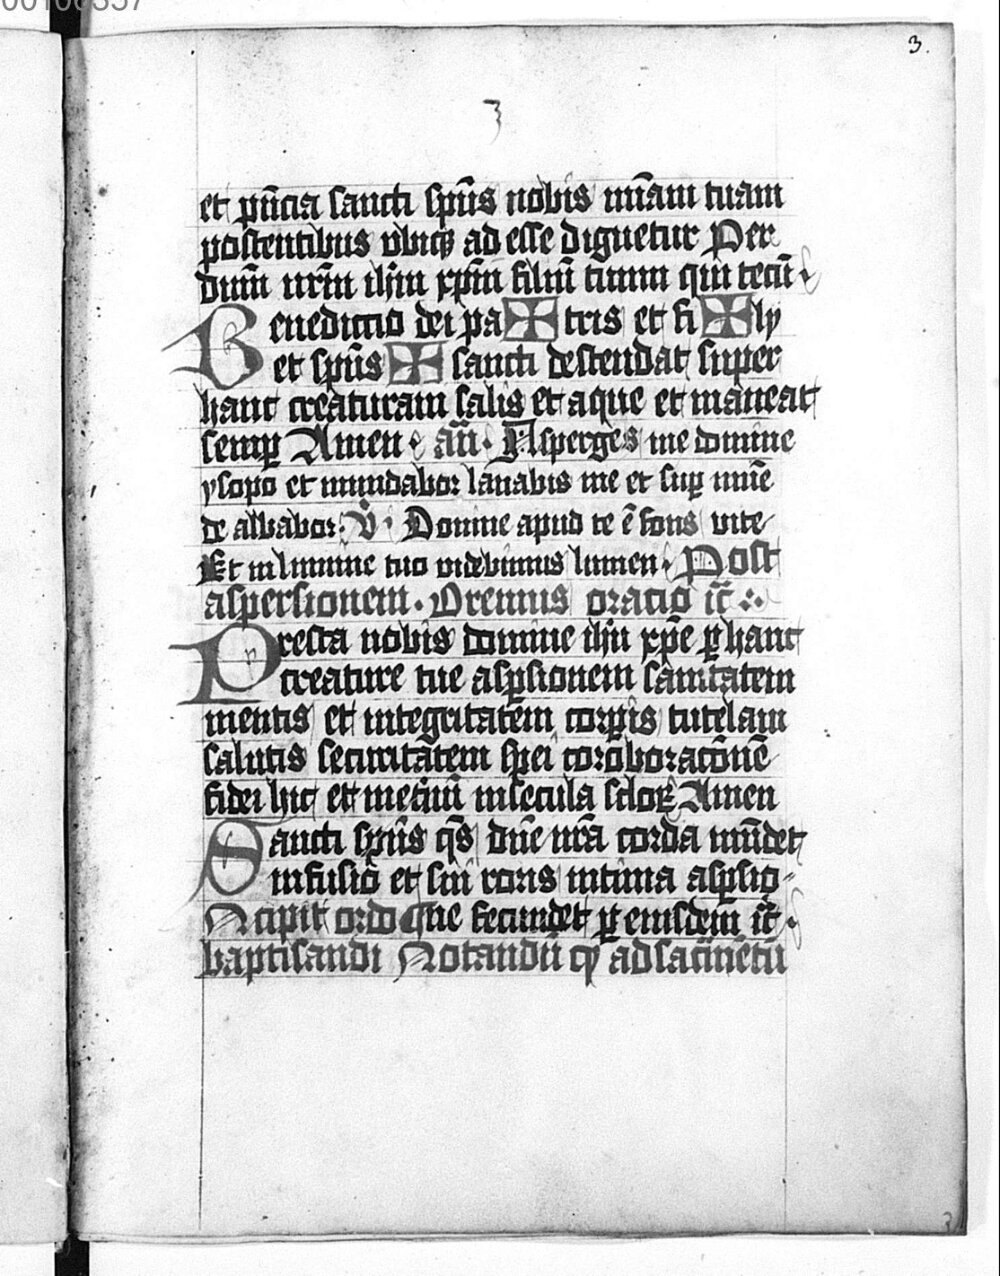 00100357
3.
3
et pn̄cia sancti sp̄us nobis mīam tuam
poscentibus vbiqꝫ ad esse dignetur Per
dnm̄ nr̄m ihm̄ xpm̄ filiū tuum qui tecū
Benedictio dei pa✠tris et fi✠ly
et sp̄us ✠ sancti descendat super
hanc creaturam salis et aque et maneat
semꝑ Amen · an̄ · Asperges me domine
ysopo et mundabor lauabis me et suꝑ niuē
de albabor · V̊ · Domine apud te ē fons vite
Et in lumine tuo videbimus lumen · Post
aspersionem · Oremus oratio
Presta nobis domine ihu xp̄e ꝑ hanc
creature tue aspsionem sanitatem
mentis et integritatem corꝑis tutelam
salutis securitatem spei corroboracōnē
fidei hic et in eternū in secula sclorꝝ Amen
Sancti sp̄us q̄s dn̄e nr̄a corda mūdet
infusio et sui roris intima aspsio
Ncipit ordo ¶ne fecundet ꝑ eiusdem
baptisandi Notandū qꝫ ad sacr̄mētū